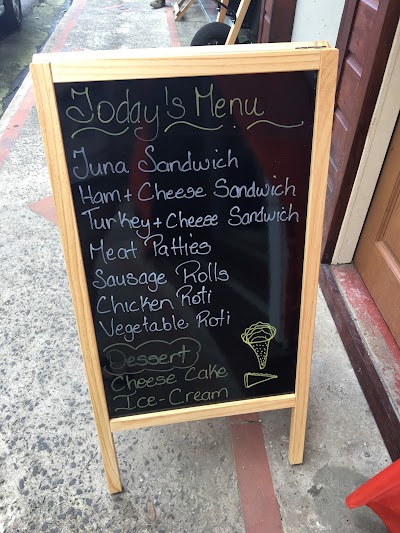 Today's Menu
Tuna Sandwich
Ham + Cheese Sandwich
Turkey + Cheese Sandwich
Meat Patties
Sausage Rolls
Chicken Roti
Vegetable Roti
Dessert
Cheese Cake
Ice-Cream